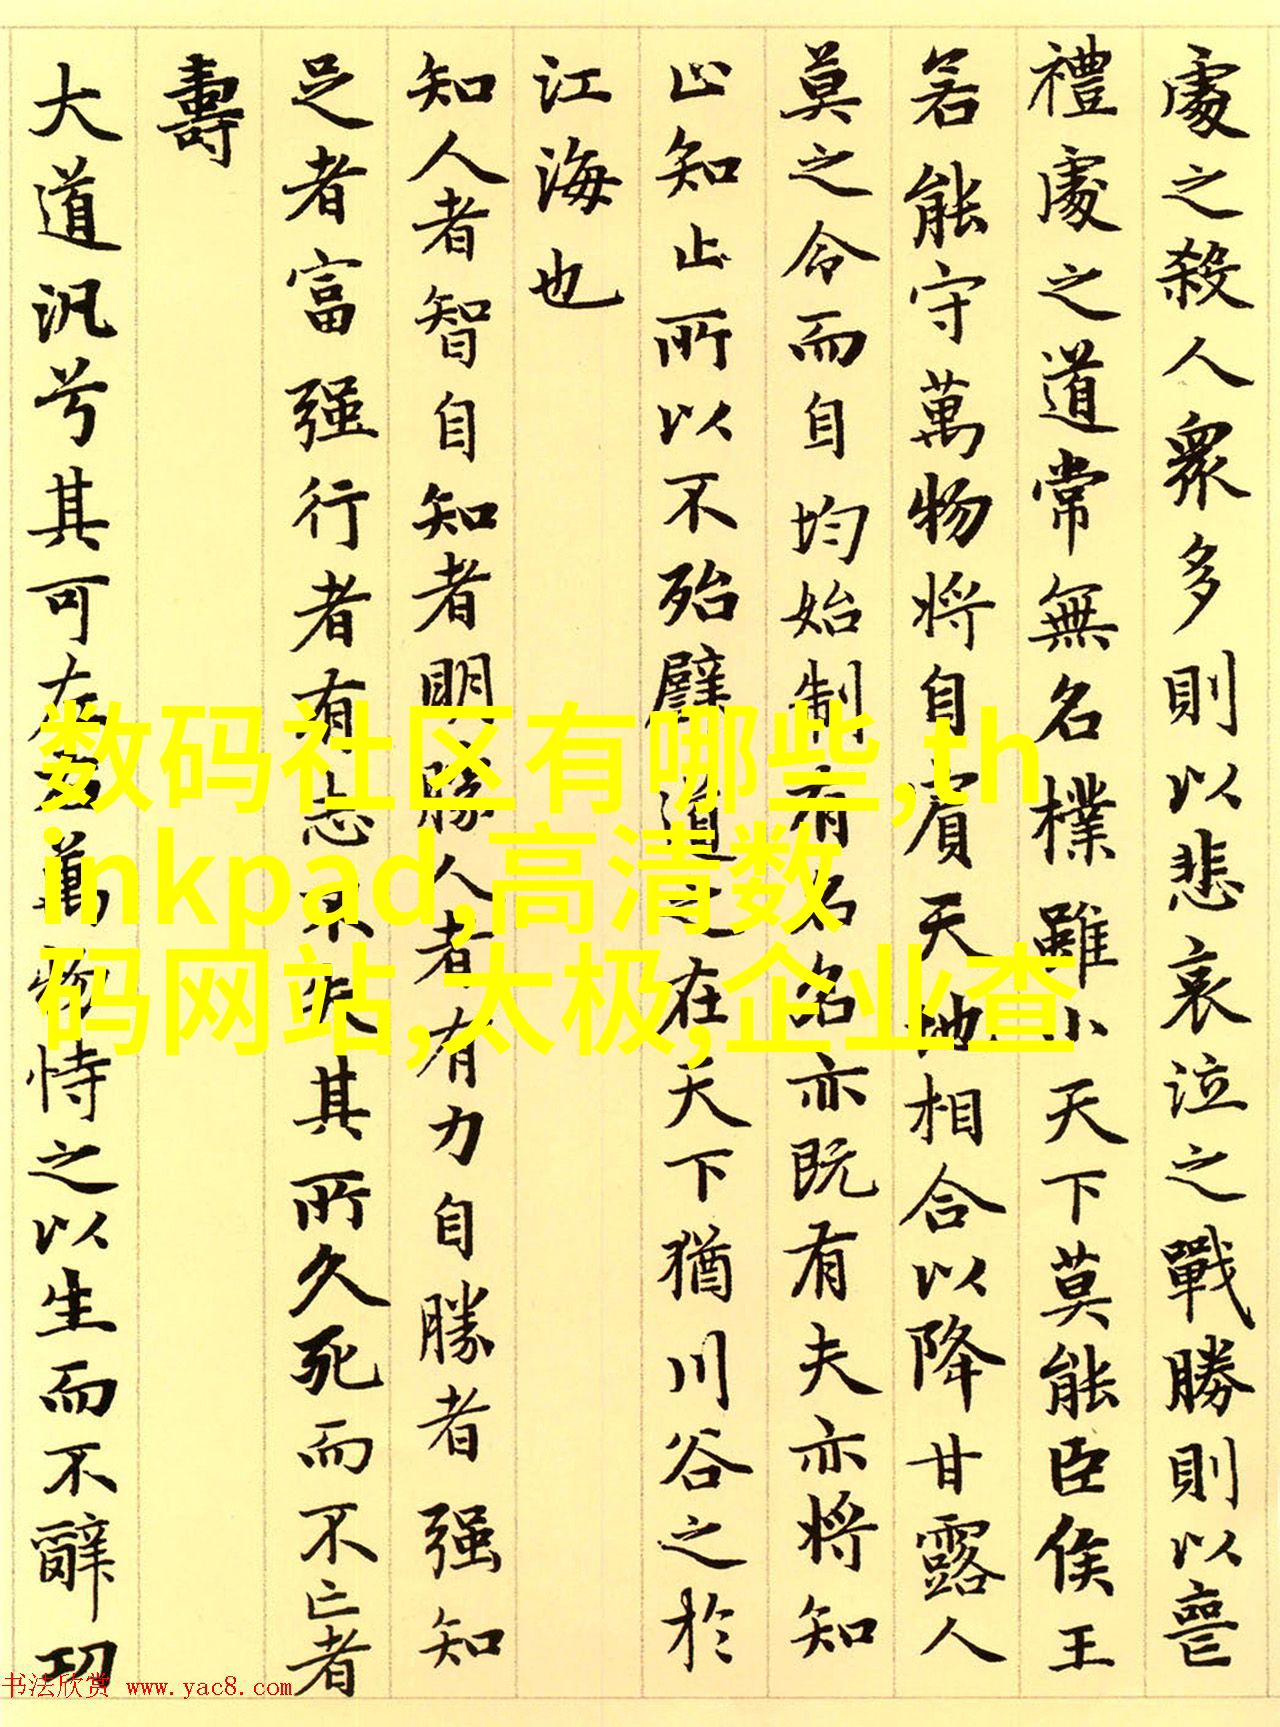 處之殺人眾多則以悲哀泣之戰勝則以喪
禮處之道常無名樸雖小天下莫能臣侯王
若能守萬物將自賓天地相合以降甘露人
莫之令而自均始制有名名亦既有夫亦將知
止知止所以不殆譬道之在天下猶川谷之於
江海也
知人者智自知者明勝人者有力自勝者强知
足者富强行者有志不失其所久死而不亡者
壽
大道汎兮其可左右萬物恃之以生而不辭功
数码社区有哪些,th
inkpad,高清数
码网站,太极,企业查
书法欣赏 www.yac8.com